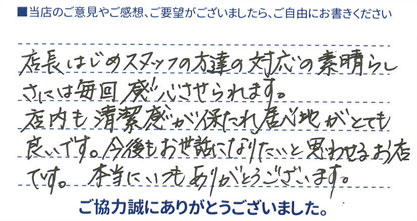 ■当店のご意見やご感想、ご要望がございましたら、ご自由にお書きください
店長はじめスタッフの方達の対応の素晴らし
さには毎回感心させられます。
店内も清潔感が保たれ居心地がとても
良いです。今後もお世話になりたいと思わせるお店
です。本当にいつもありがとうございます。
ご協力誠にありがとうございました。